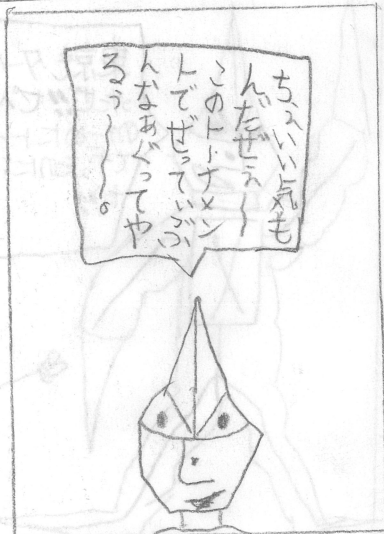 ちょいい気も
んだぜぇ〜
このトーナメン
トでぜっていぶ
んなあぐってや
るぅ〜〜。